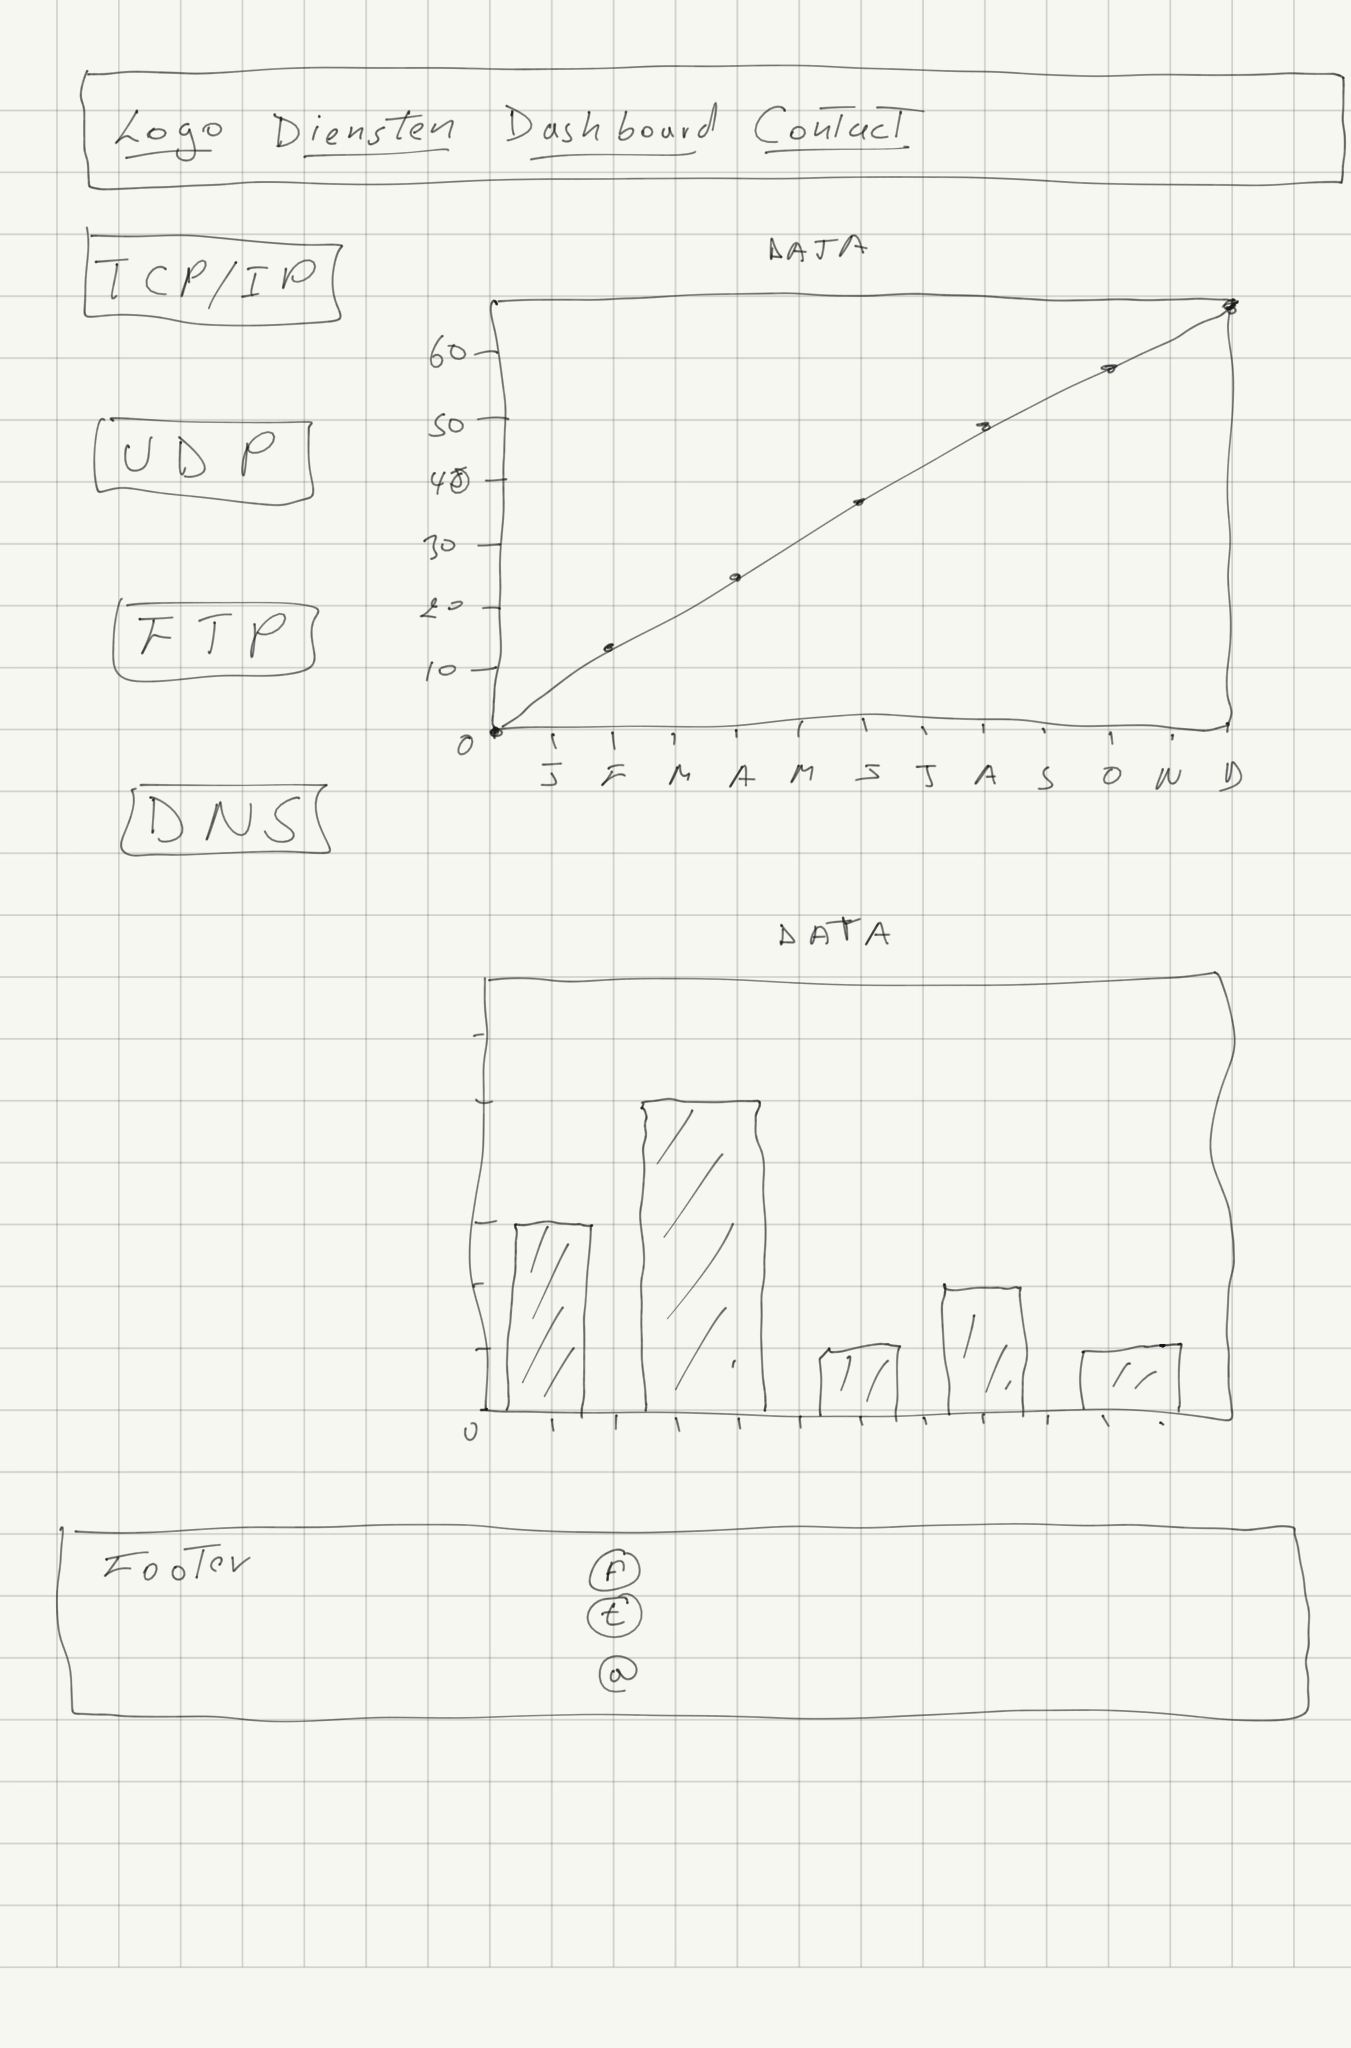 Logo Diensten Dashboard Contact
TCP/IP
UDP
FTP
DNS
DATA
60
50
40
30
20
10
0
J F M A M J J A S O N D
DATA
0
Footer
F
t
@